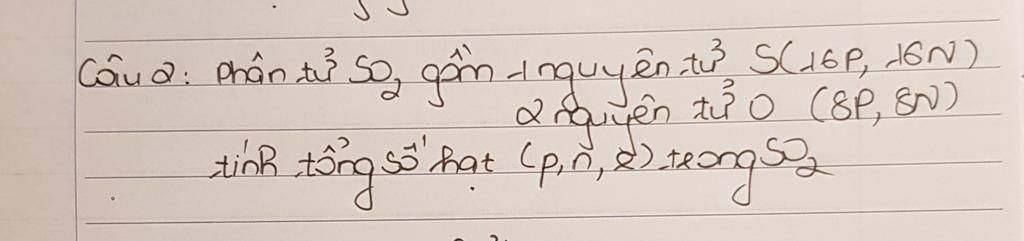 Câu 2: phân tử SO₂ gồm 1 nguyên tử S(16P, 16N)
2 nguyên tử O (8P, 8N)
tính tổng số hạt (p, n, e) trong SO₂